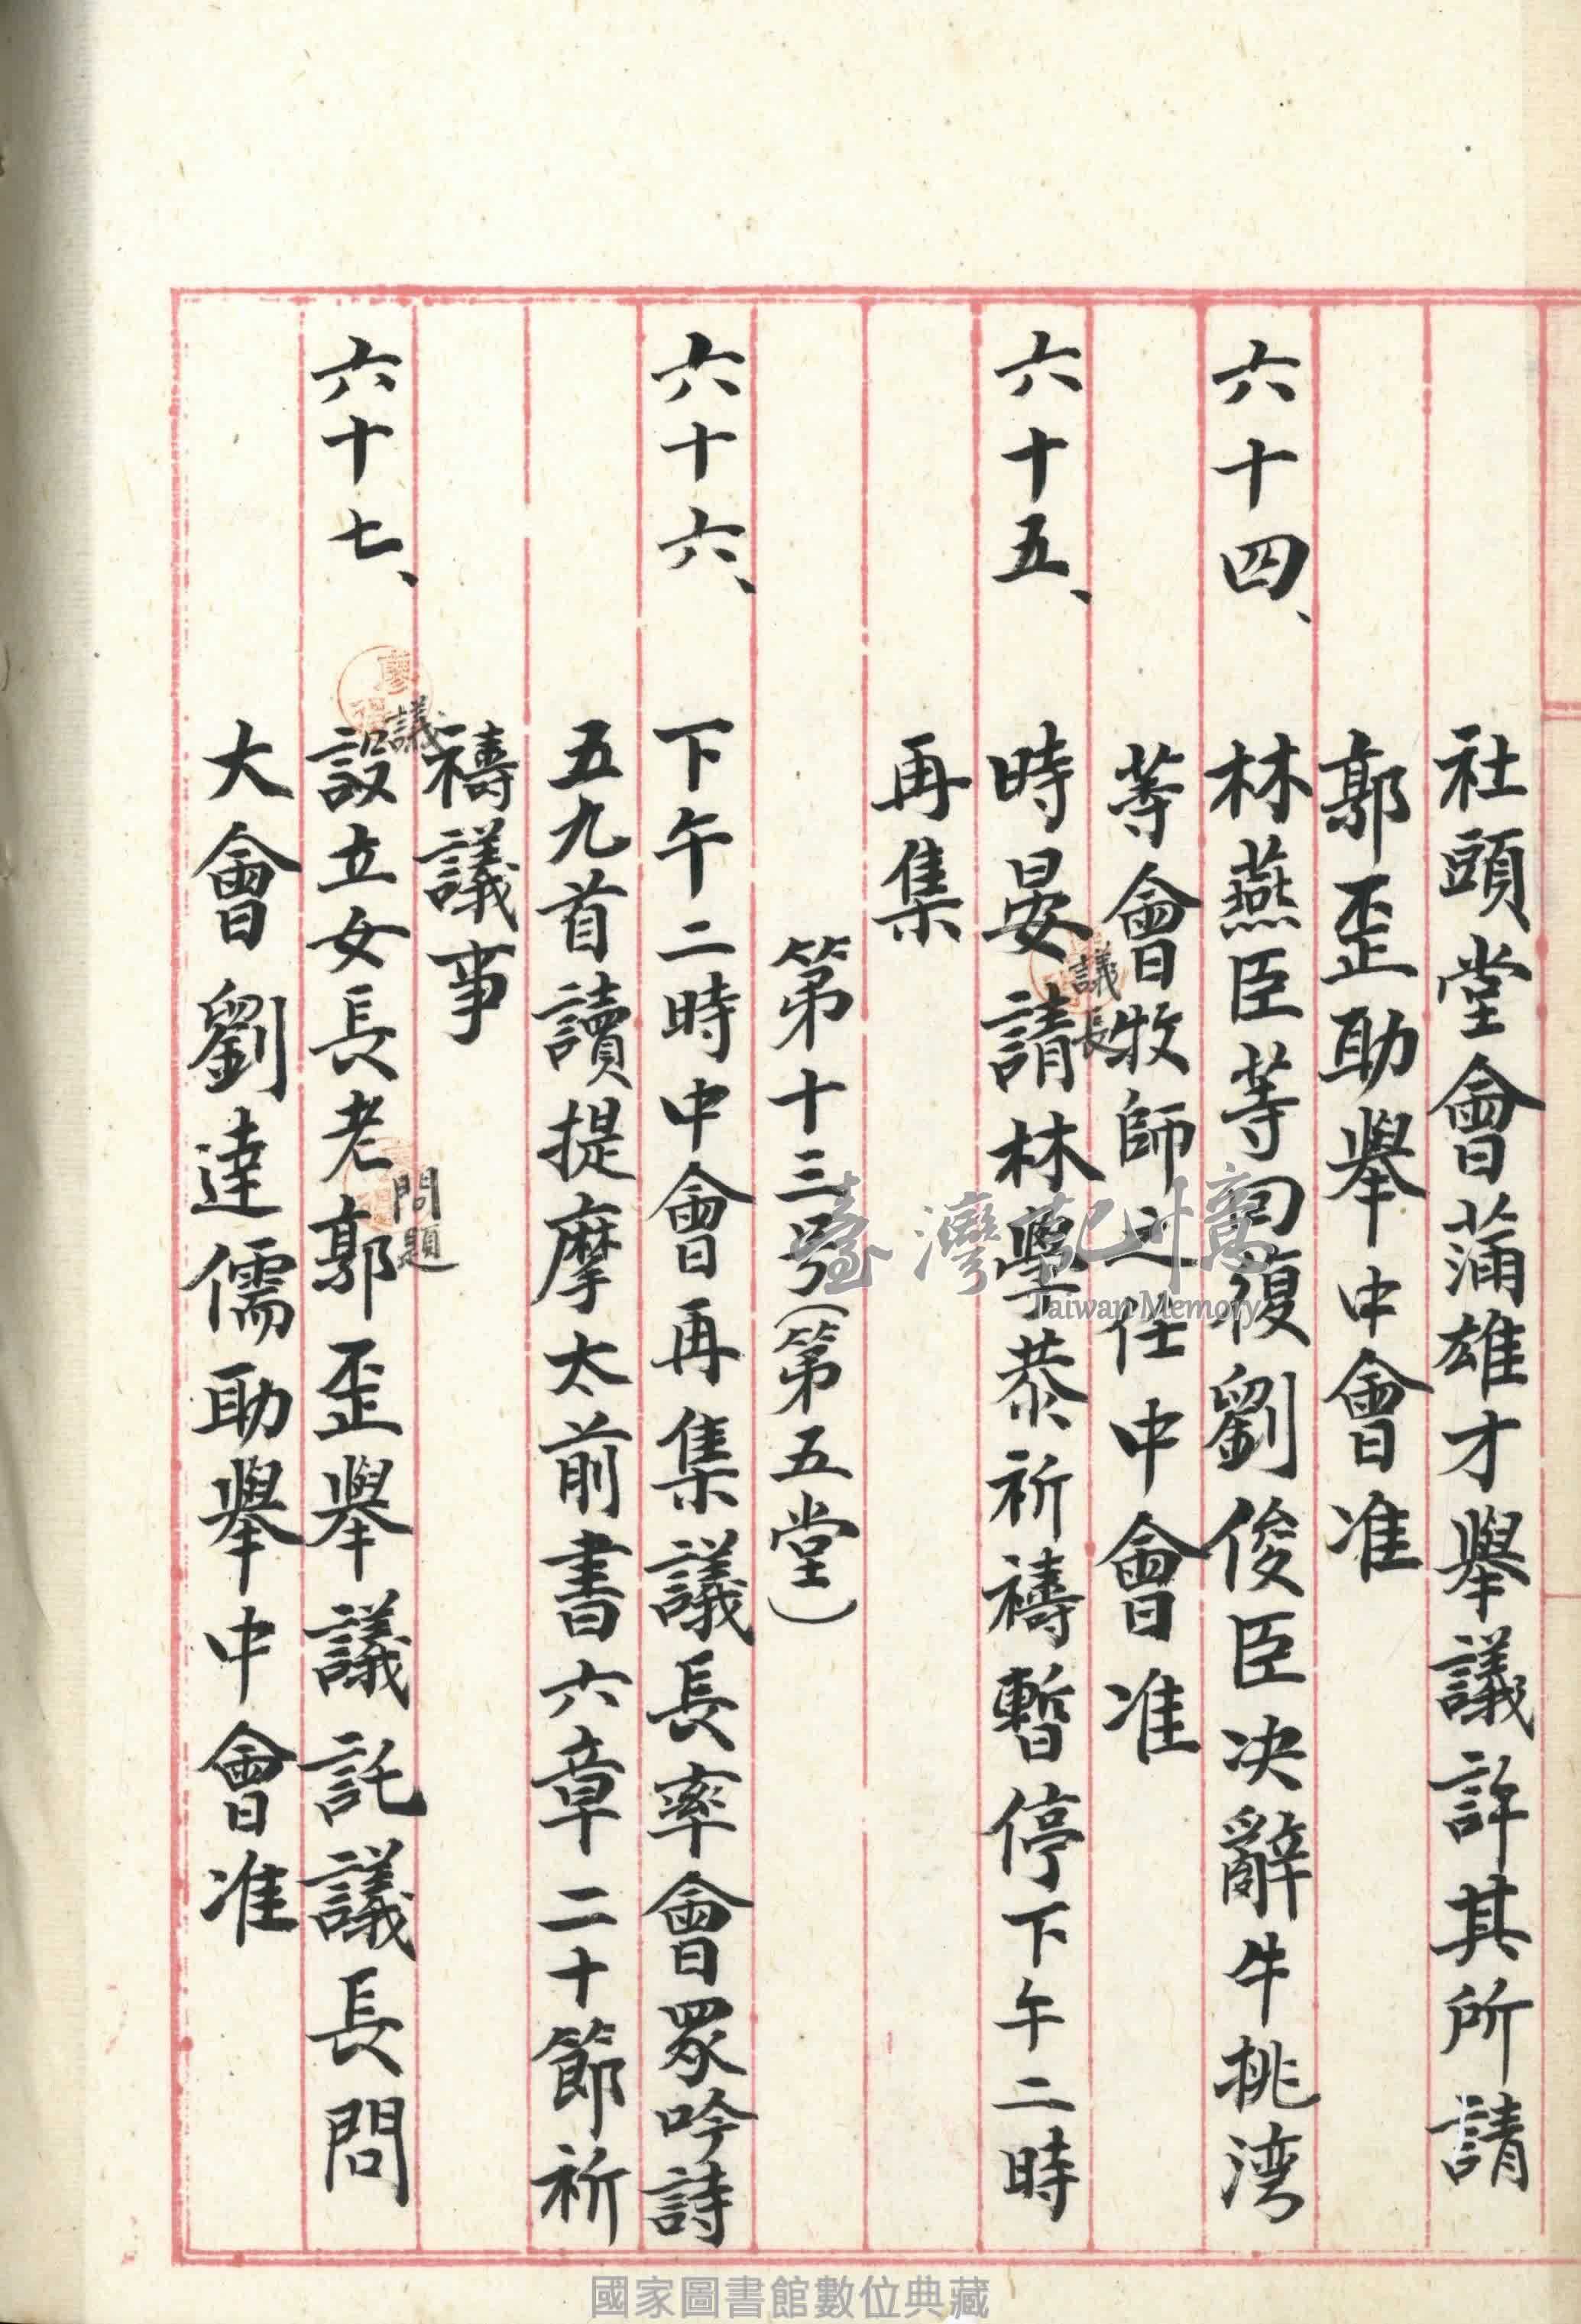 社頭堂會蒲雄才舉議許其所請
郭歪助舉中會准
六十四、林燕臣等囘覆劉俊臣决辭牛挑湾
等會牧師之任中會准
六十五、時晏議長請林學恭祈禱暫停下午二時
再集
第十三号(第五堂)
六十六、下午二時中會再集議長率會眾吟詩
五九首讀提摩太前書六章二十節祈
禱議事
六十七、議設立女長老問題郭歪舉議託議長問
大會劉達儒助舉中會准
臺灣記憶
Taiwan Memory
國家圖書館數位典藏